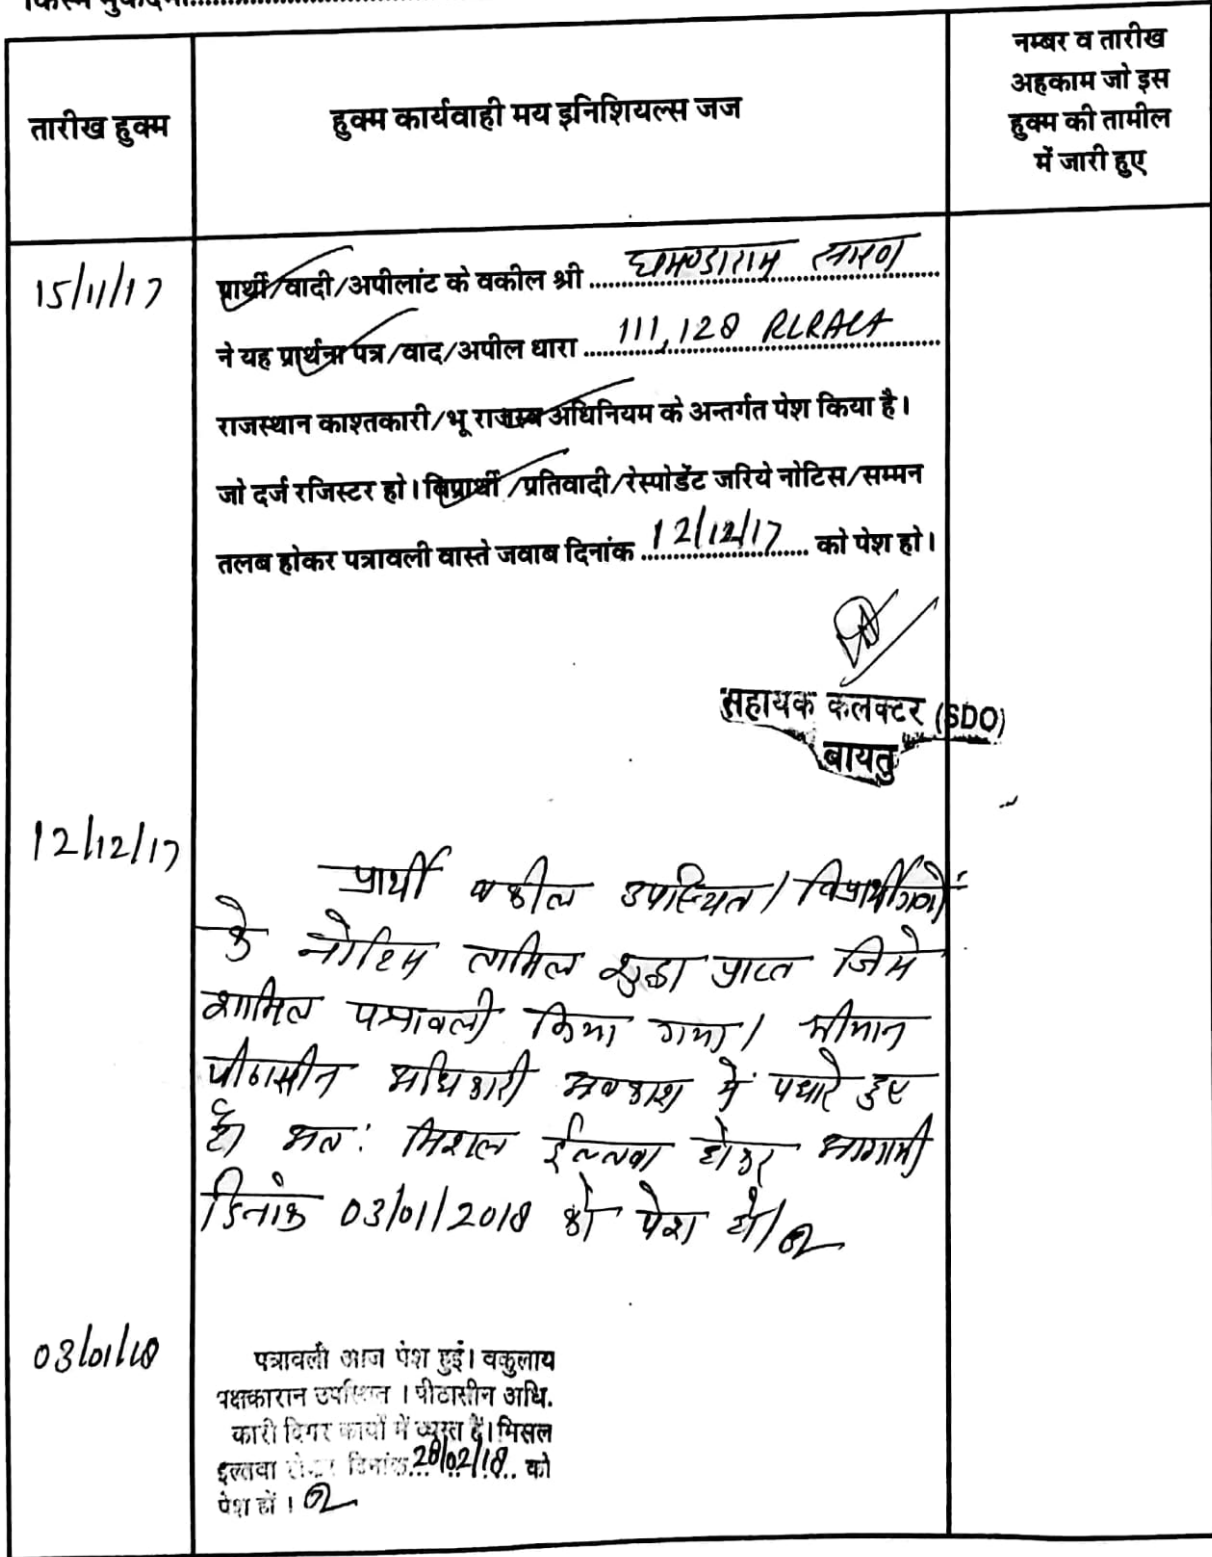 तारीख हुक्म
हुक्म कार्यवाही मय इनिशियल्स जज
नम्बर व तारीख
अहकाम जो इस
हुक्म की तामील
में जारी हुए
15/11/17
प्रार्थी/वादी/अपीलांट के वकील श्री घमण्डाराम सारण
ने यह प्रार्थना पत्र/वाद/अपील धारा 111,128 RLRAct
राजस्थान काश्तकारी/भू राजस्व अधिनियम के अन्तर्गत पेश किया है।
जो दर्ज रजिस्टर हो। विप्रार्थी/प्रतिवादी/रेस्पोडेंट जरिये नोटिस/सम्मन
तलब होकर पत्रावली वास्ते जवाब दिनांक 12/12/17 को पेश हो।
सहायक कलक्टर (SDO)
बायतु
12/12/17
प्रार्थी वकील उपस्थित। विप्रार्थीगणों
के नोटिस तामिल शुदा प्राप्त जिसे
शामिल पत्रावली किया गया। श्रीमान
पीठासीन अधिकारी अवकाश में पधारे हुए
है। अतः मिशल ईल्तवा होकर आगामी
दिनांक 03/01/2018 को पेश हो।
03/01/18
पत्रावली आज पेश हुई। वकुलाय
पक्षकारान उपस्थित । पीठासीन अधि.
कारी दिगर कार्यो में व्यस्त हैं। मिसल
इल्तवा होकर दिनांक 28/02/18 को
पेश हों ।